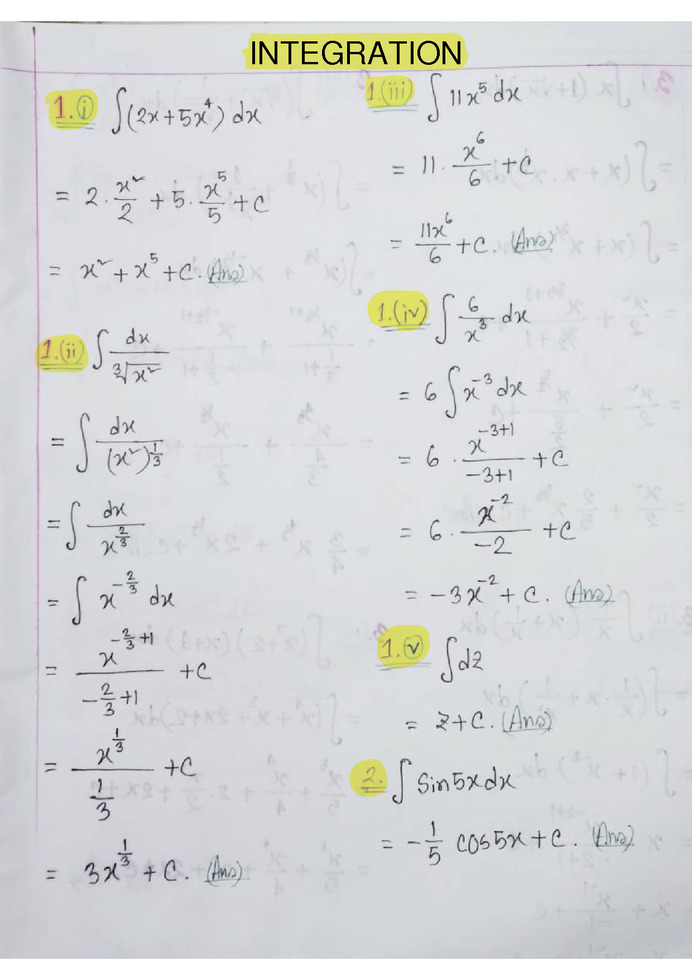 INTEGRATION
1.(i) ∫(2x+5x⁴) dx
= 2·x²/2 + 5·x⁵/5 + c
= x² + x⁵ + c. (Ans)
1.(ii) ∫ dx/∛x²
= ∫ dx/(x²)^(1/3)
= ∫ dx/x^(2/3)
= ∫ x^(-2/3) dx
= x^(-2/3+1)/(-2/3+1) + c
= x^(1/3)/(1/3) + c
= 3x^(1/3) + c. (Ans)
1.(iii) ∫ 11x⁵ dx
= 11·x⁶/6 + c
= 11x⁶/6 + c. (Ans)
1.(iv) ∫ 6/x³ dx
= 6 ∫ x⁻³ dx
= 6 · x^(-3+1)/(-3+1) + c
= 6 · x⁻²/-2 + c
= -3x⁻² + c. (Ans)
1.(v) ∫dz
= z + c. (Ans)
2. ∫ Sin5x dx
= -1/5 cos5x + c. (Ans)